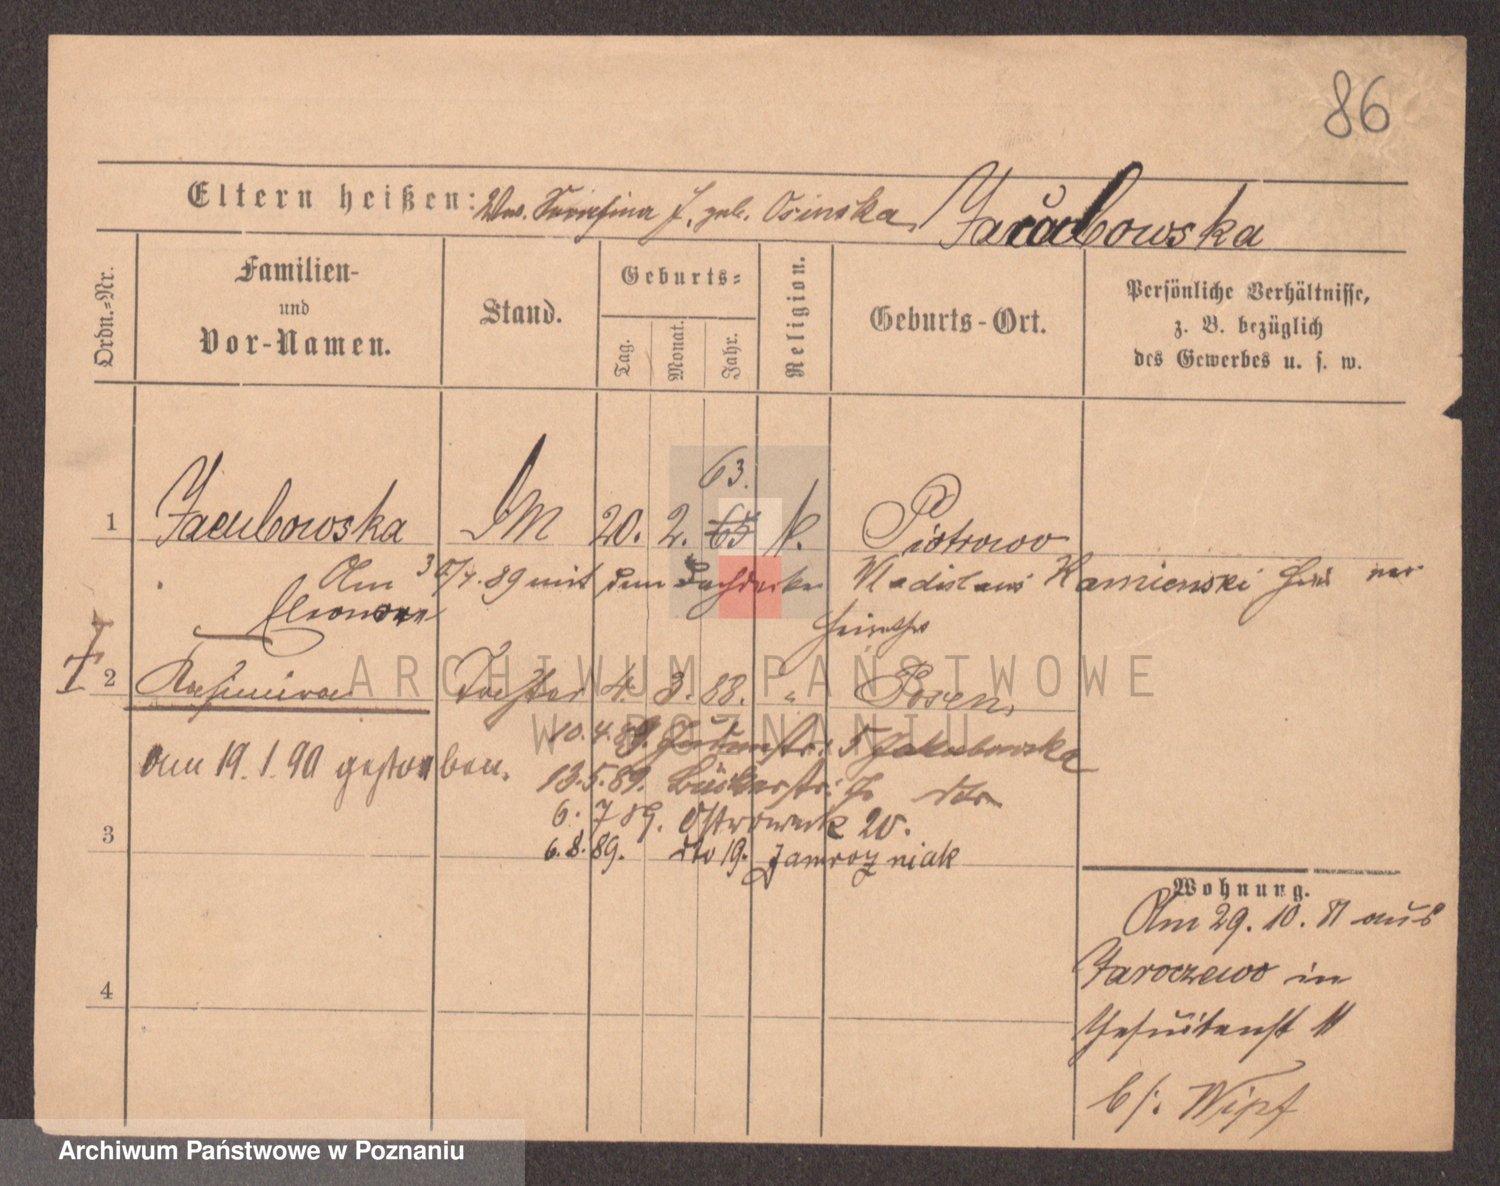 86
Eltern heißen: Ww. Serafina J. geb. Osinska, Jacubowska
Ordn.-Nr.
Familien-
und
Vor-Namen.
Stand.
Geburts-
Tag.
Monat.
Jahr.
Religion.
Geburts-Ort.
Persönliche Verhältnisse,
z. B. bezüglich
des Gewerbes u. s. w.
63.
1 Jacubowska 20. 2. 65 k. Piotrowo
Am 89 mit dem Dachdecker Vladislaus Kamienski
Eleonore
2 Kasimira Tochter 4. 3. 88. " Posen,
10.4.89. Jakubowska
am 19.1.90 gestorben.
13.5.89.
6. 7 89. 20.
3
6.8.89. dto 19. Jamrozniak
4
Wohnung.
Am 29. 10. aus
Jaroczewo in
Jesuitenst 11
b/. Wipf
ARCHIWUM PAŃSTWOWE
W POZNANIU
Archiwum Państwowe w Poznaniu